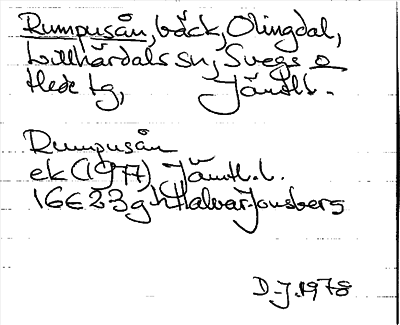 Rumpusån, bäck, Olingdal,
Lillhärdals sn, Svegs o
Hede tg, Jämtl.
Rumpusån
ek (1977) Jämtl. l.
16E23gh Halvar Jonsberg
D-J. 1978